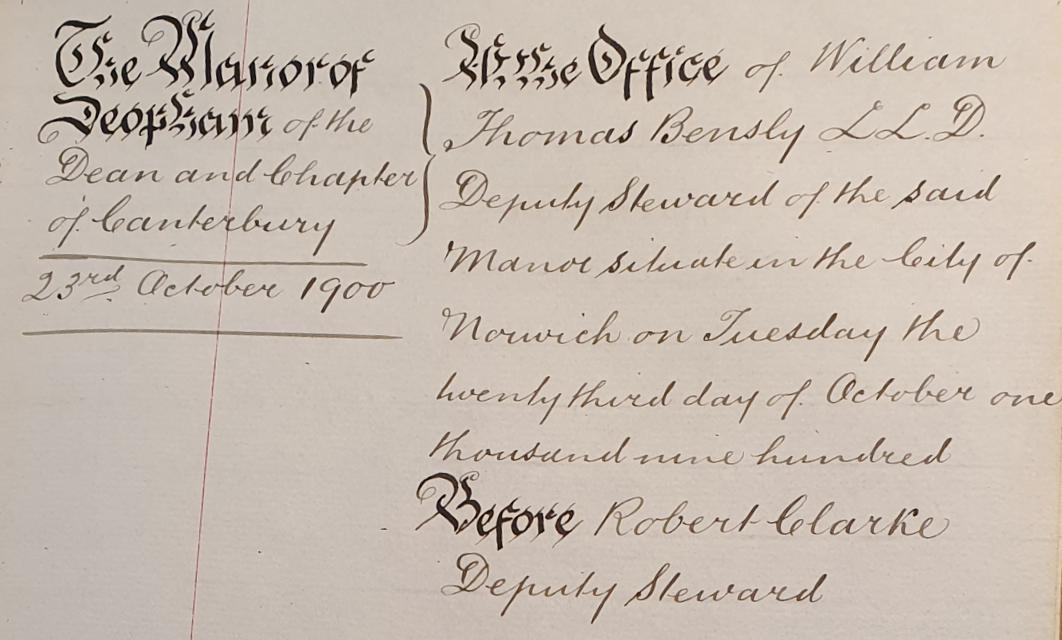 The Manor of
Deopham of the
Dean and Chapter
of Canterbury
23rd October 1900
At the Office of William
Thomas Bensly LL.D.
Deputy Steward of the said
Manor situate in the City of
Norwich on Tuesday the
twenty third day of October one
thousand nine hundred
Before Robert Clarke
Deputy Steward